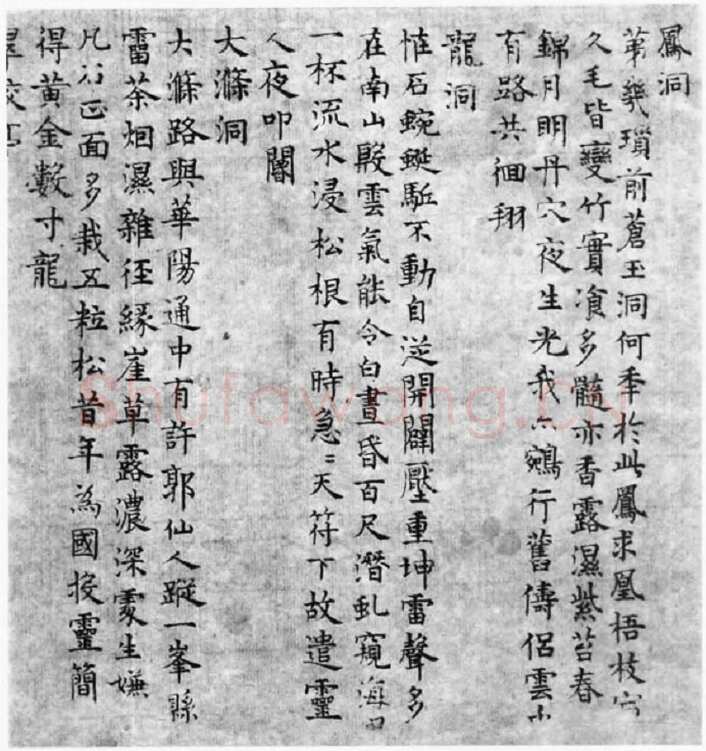 鳳洞
第幾瑣前蒼玉洞何年於此鳳求凰梧枝宿
久毛皆變竹實飡多髓亦香露濕紫苔春
錦月明丹穴夜生光我亦鵷行舊儔侶雲山
有路共徊翔
龍洞
恠石蜿蜒馳不動自從開闢壓重坤雷聲多
在南山殷雲氣能令白晝昏百尺潛虬窺海
一杯流水浸松根有時急〻天符下故遣靈
人夜叩閽
大滌洞
大滌路與華陽通中有許郭仙人蹤一峯縣
霤茶烟濕雜徑緣崖草露濃深處生嫌
凡石正面多栽五粒松昔年為國投靈簡
得黃金數寸龍
翠蛟亭
Shufawang.cv